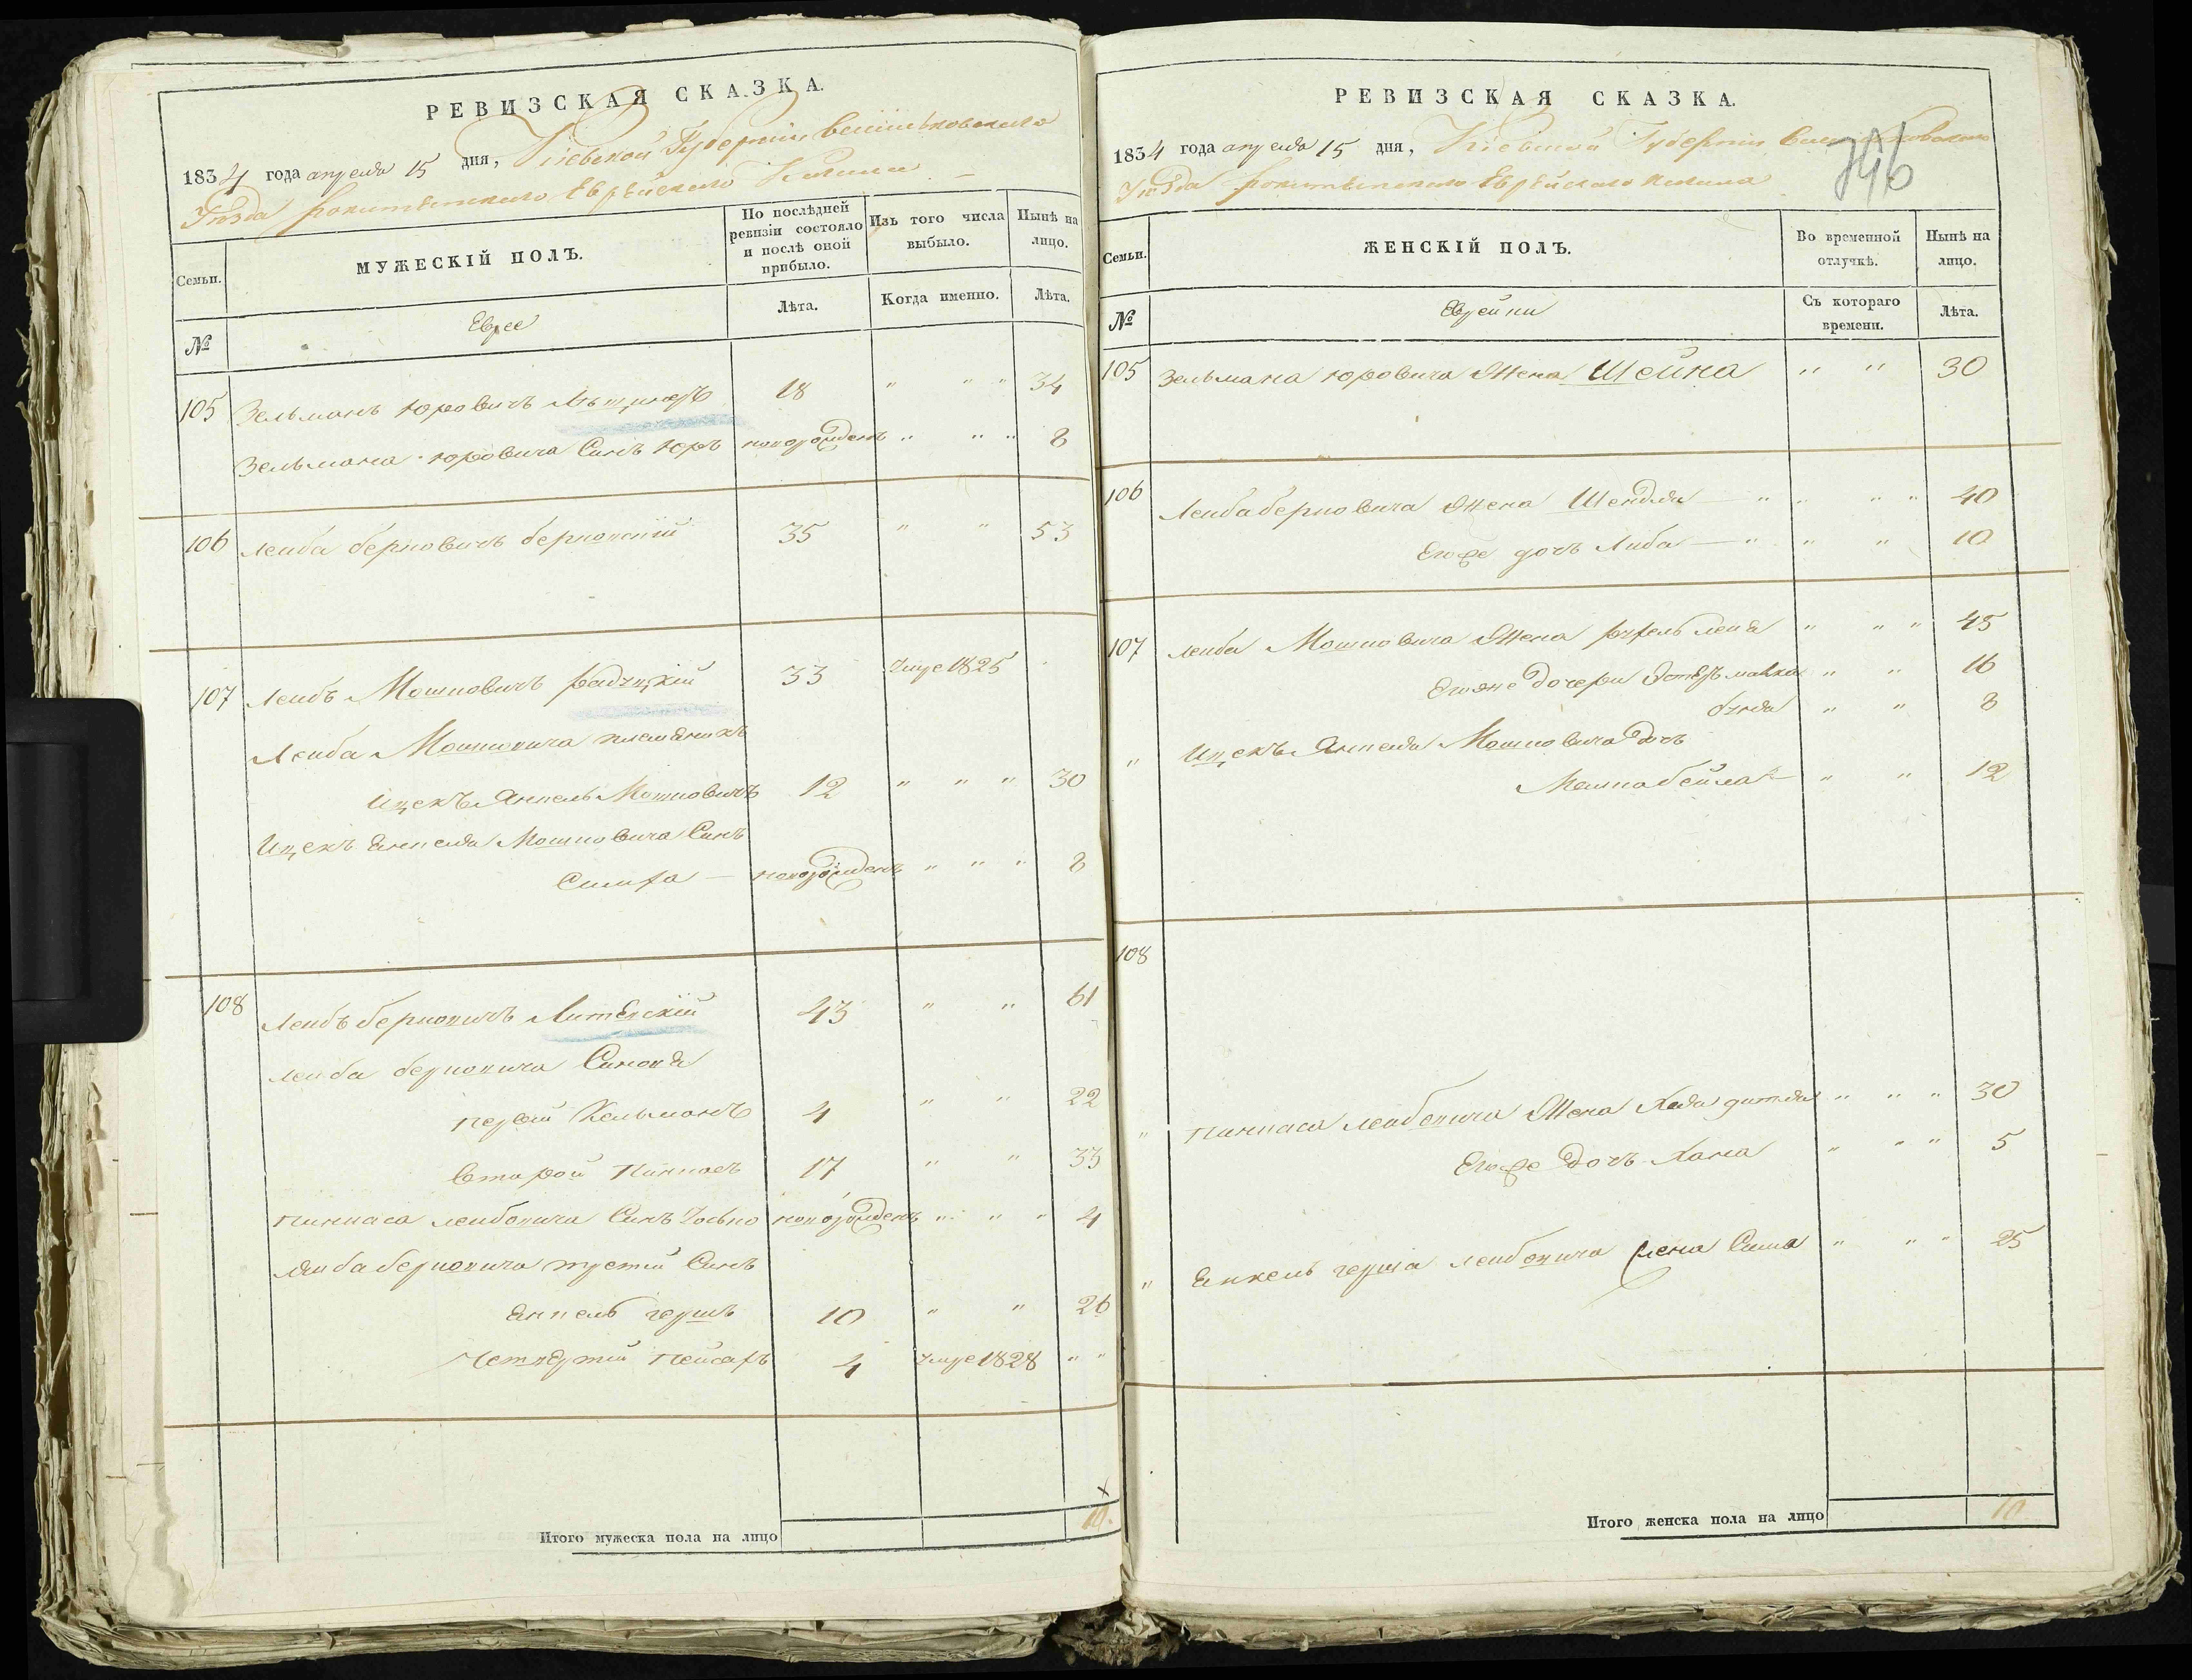 РЕВИЗСКАЯ СКАЗКА.
1834 года апреля 15 дня, Кіевской Губерніи Васильковского
Уезда Рокитянского Еврейского Кагала
Семьи.
МУЖЕСКІЙ ПОЛЪ.
По послѣдней ревизіи состояло и послѣ оной прибыло.
Изъ того числа выбыло.
Нынѣ на лицо.
№
Еврее
Лѣта.
Когда именно.
Лѣта.
105 Зельманъ Юровичъ 18 " " " 34
Зельмана Юровича Синъ Юръ новорожденъ " " " 8
106 Лейба Берковичъ 35 " " 53
107 Лейбъ Мошковичъ 33 Умре 1825
Лейба Мошковича племяникъ
Ицекъ Янкель Мошковичъ 12 " " " 30
Ицекъ Янкеля Мошковича Синъ
Симха — новорожденъ " " " 8
108 Лейбъ Берковичъ 43 " " 61
Лейба Берковича Синовя
первый Кельманъ 4 " " 22
Второй Пинкасъ 17 " " 33
Пинкаса Лейбовича Синъ Иосько новорожденъ " " " 4
Лейба Берковича третій Синъ
Янкель Гершъ 10 " " 26
Четвертій Пейсахъ 4 Умре 1828 " "
Итого мужеска пола на лицо 10.
РЕВИЗСКАЯ СКАЗКА.
346
1834 года апреля 15 дня, Кіевской Губерніи Васильковского
Уезда Рокитянского Еврейского Кагала
Семьи.
ЖЕНСКІЙ ПОЛЪ.
Во временной отлучкѣ.
Нынѣ на лицо.
№
Еврейки
Съ котораго времени.
Лѣта.
105 Зельмана Юровича Жена Шейна " " 30
106 Лейба Берковича Жена Шендля — " " " " 40
Егоже дочъ Либа — " " " 10
107 Лейба Мошковича Жена Рухель Лея " " " 45
Егоже дочери Эстеръ Малка " " 16
" " 8
" Ицекъ Янкеля Мошковича Дочъ
Малка Бейла — " " 12
108
" Пинкаса Лейбовича Жена Хая " " " 30
Егоже Дочъ Хана " " " 5
" Янкель Герша Лейбовича Жена " " " 25
Итого женска пола на лицо 10